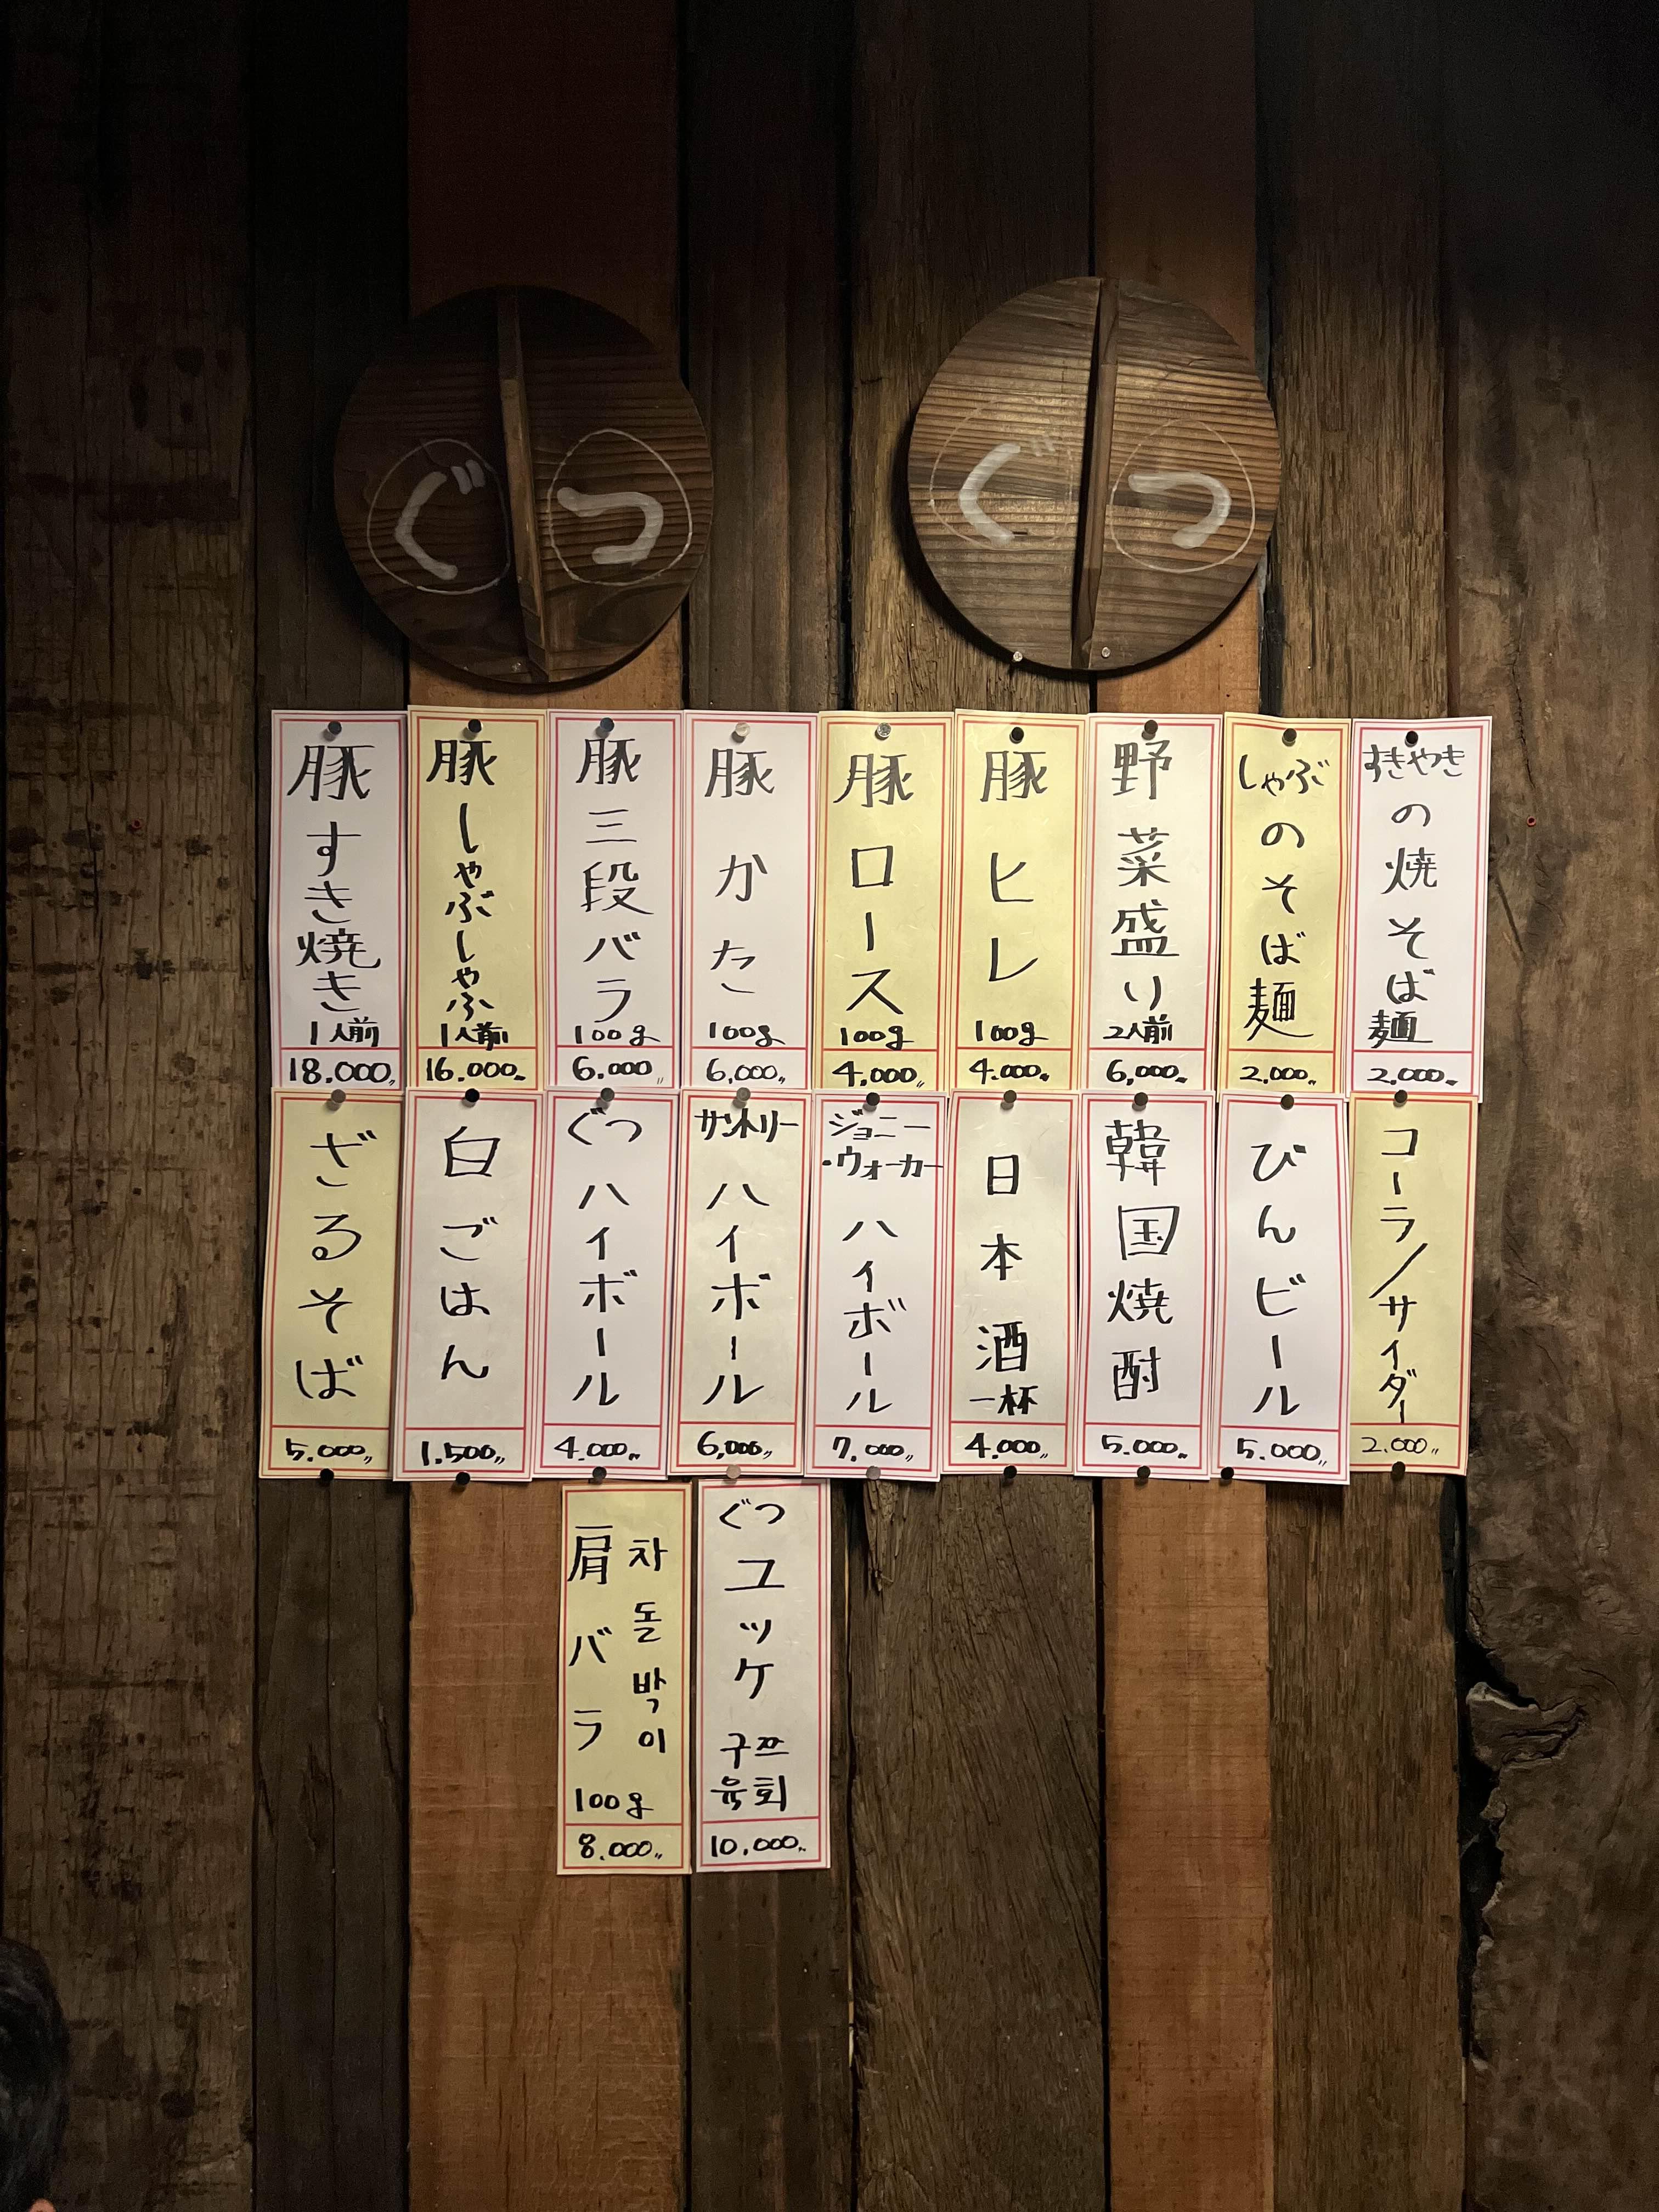 ぐつ
ぐつ
豚すき焼き
1人前
18.000〃
豚しゃぶしゃぶ
1人前
16.000〃
豚三段バラ
100g
6.000〃
豚かた
100g
6,000〃
豚ロース
100g
4,000〃
豚ヒレ
100g
4.000〃
野菜盛り
2人前
6,000〃
しゃぶ
のそば麺
2,000〃
すきやき
の焼そば麺
2.000〃
ざるそば
5.000〃
白ごはん
1.500〃
ぐつ
ハイボール
4.000〃
サントリー
ハイボール
6,000〃
ジョニー
・ウォーカー
ハイボール
7.000〃
日本酒
一杯
4.000〃
韓国焼酎
5.000〃
びんビール
5.000〃
コーラ/サイダー
2.000〃
肩バラ
차돌박이
100g
8.000〃
ぐつ
ユッケ
구쯔
육회
10.000〃